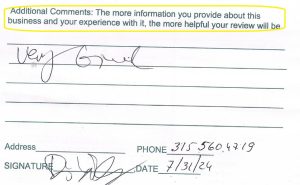 Additional Comments: The more information you provide about this
business and your experience with it, the more helpful your review will be.
Very Good
Address PHONE 315 560 4719
SIGNATURE DATE 7/31/24